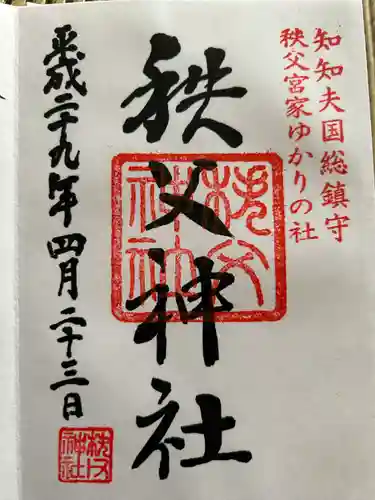 知知夫国総鎮守
秩父宮家ゆかりの社
秩父神社
秩父神社
平成二十九年四月二十三日
秩父神社